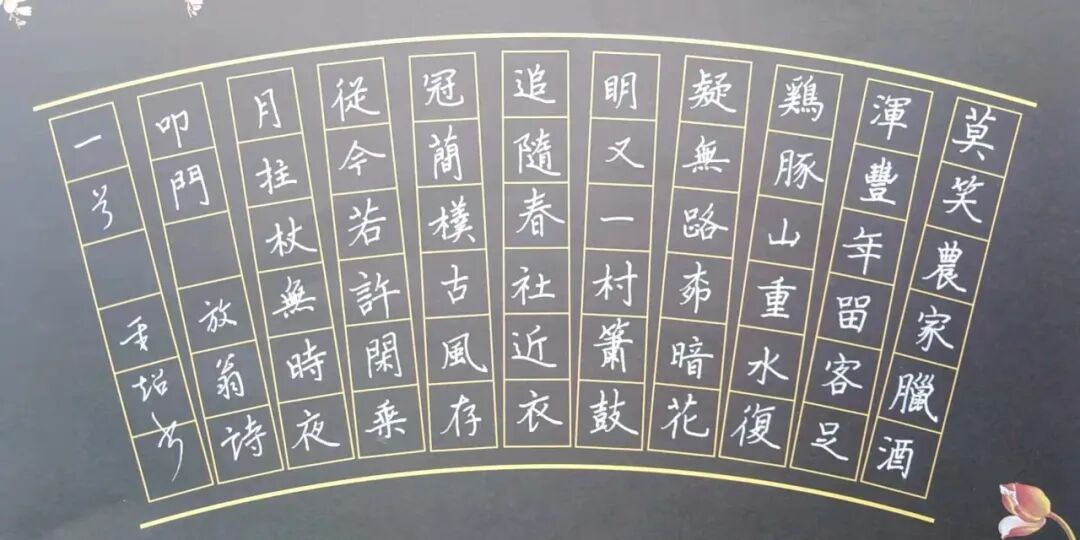 莫笑農家臘酒
渾豐年留客足
鷄豚山重水復
疑無路柳暗花
明又一村簫鼓
追隨春社近衣
冠蕳樸古風存
從今若許閑乗
月拄杖無時夜
叩門 放翁詩
一首